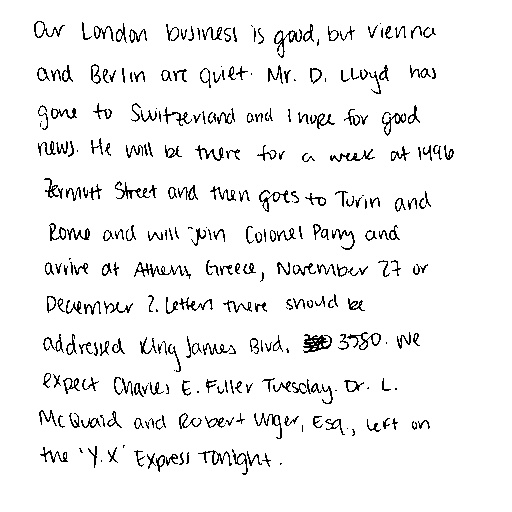 Our London business is good, but Vienna
and Berlin are quiet. Mr. D. Lloyd has
gone to Switzerland and I hope for good
news. He will be there for a week at 1496
Zermutt Street and then goes to Turin and
Rome and will join Colonel Parry and
arrive at Athens, Greece, November 27 or
December 2. Letters there should be
addressed King James Blvd. 3580. We
expect Charles E. Fuller Tuesday. Dr. L.
McQuaid and Robert Unger, Esq., left on
the 'Y.X' Express tonight.